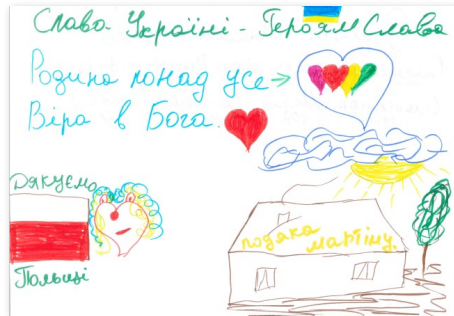 Слава Україні - Героям Слава
Родина понад усе →
Віра в Бога.
Дякуємо
Польщі
подяка
мартіну.